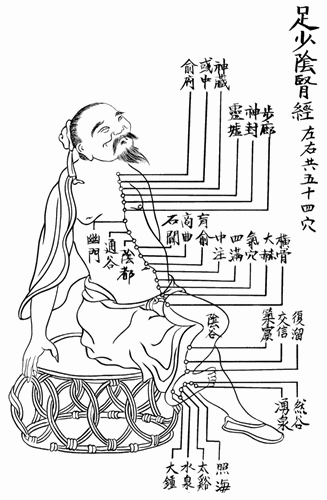 足少陰腎經
左右共五十四穴
步廊
神封
靈墟
神藏
彧中
俞府
橫骨
大赫
氣穴
四滿
中注
肓俞
商曲
石關
陰都
通谷
幽門
陰谷
復溜
交信
築賓
然谷
湧泉
照海
太谿
水泉
大鐘